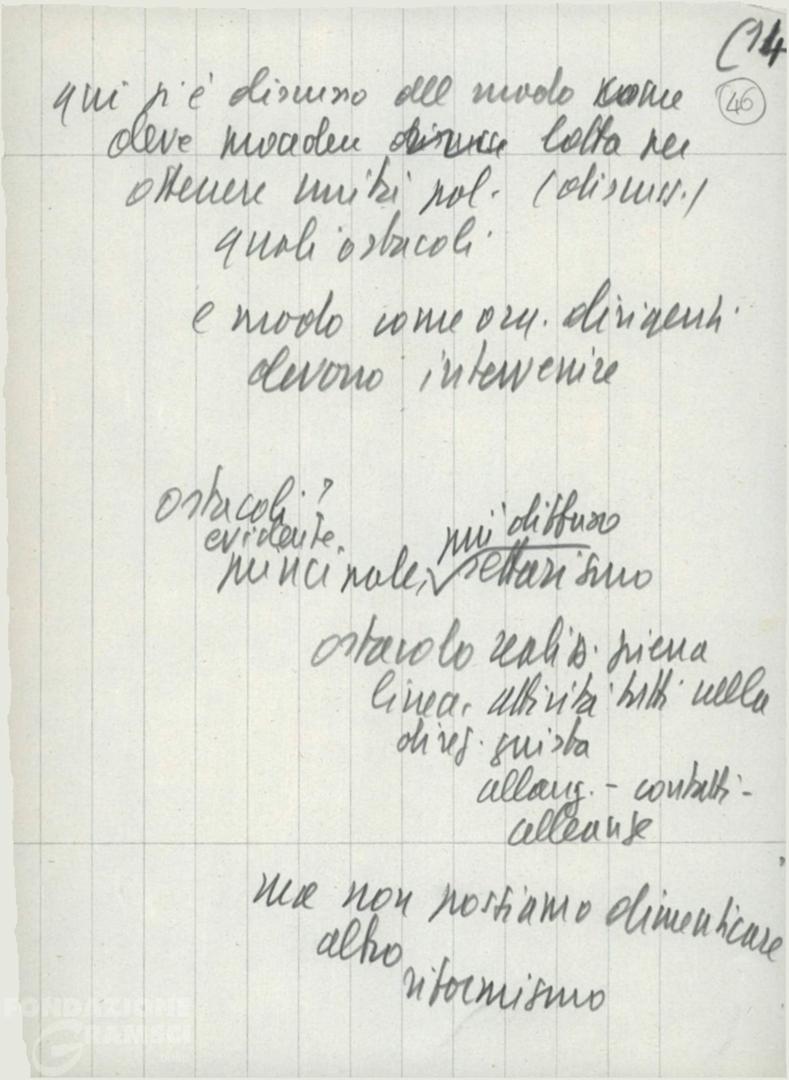 (14
46
qui si è discusso del modo come
deve procedere lotta per
ottenere unità pol. (discuss.)
quali ostacoli
e modo come org. dirigenti
devono intervenire
ostacoli?
evidente.
più diffuso
principale, settarismo
ostacolo realizz. piena
linea, attività tutti nella
direz. giusta
allarg. - contatti -
alleanze
ma non possiamo dimenticare
altro
riformismo
FONDAZIONE
GRAMSCI